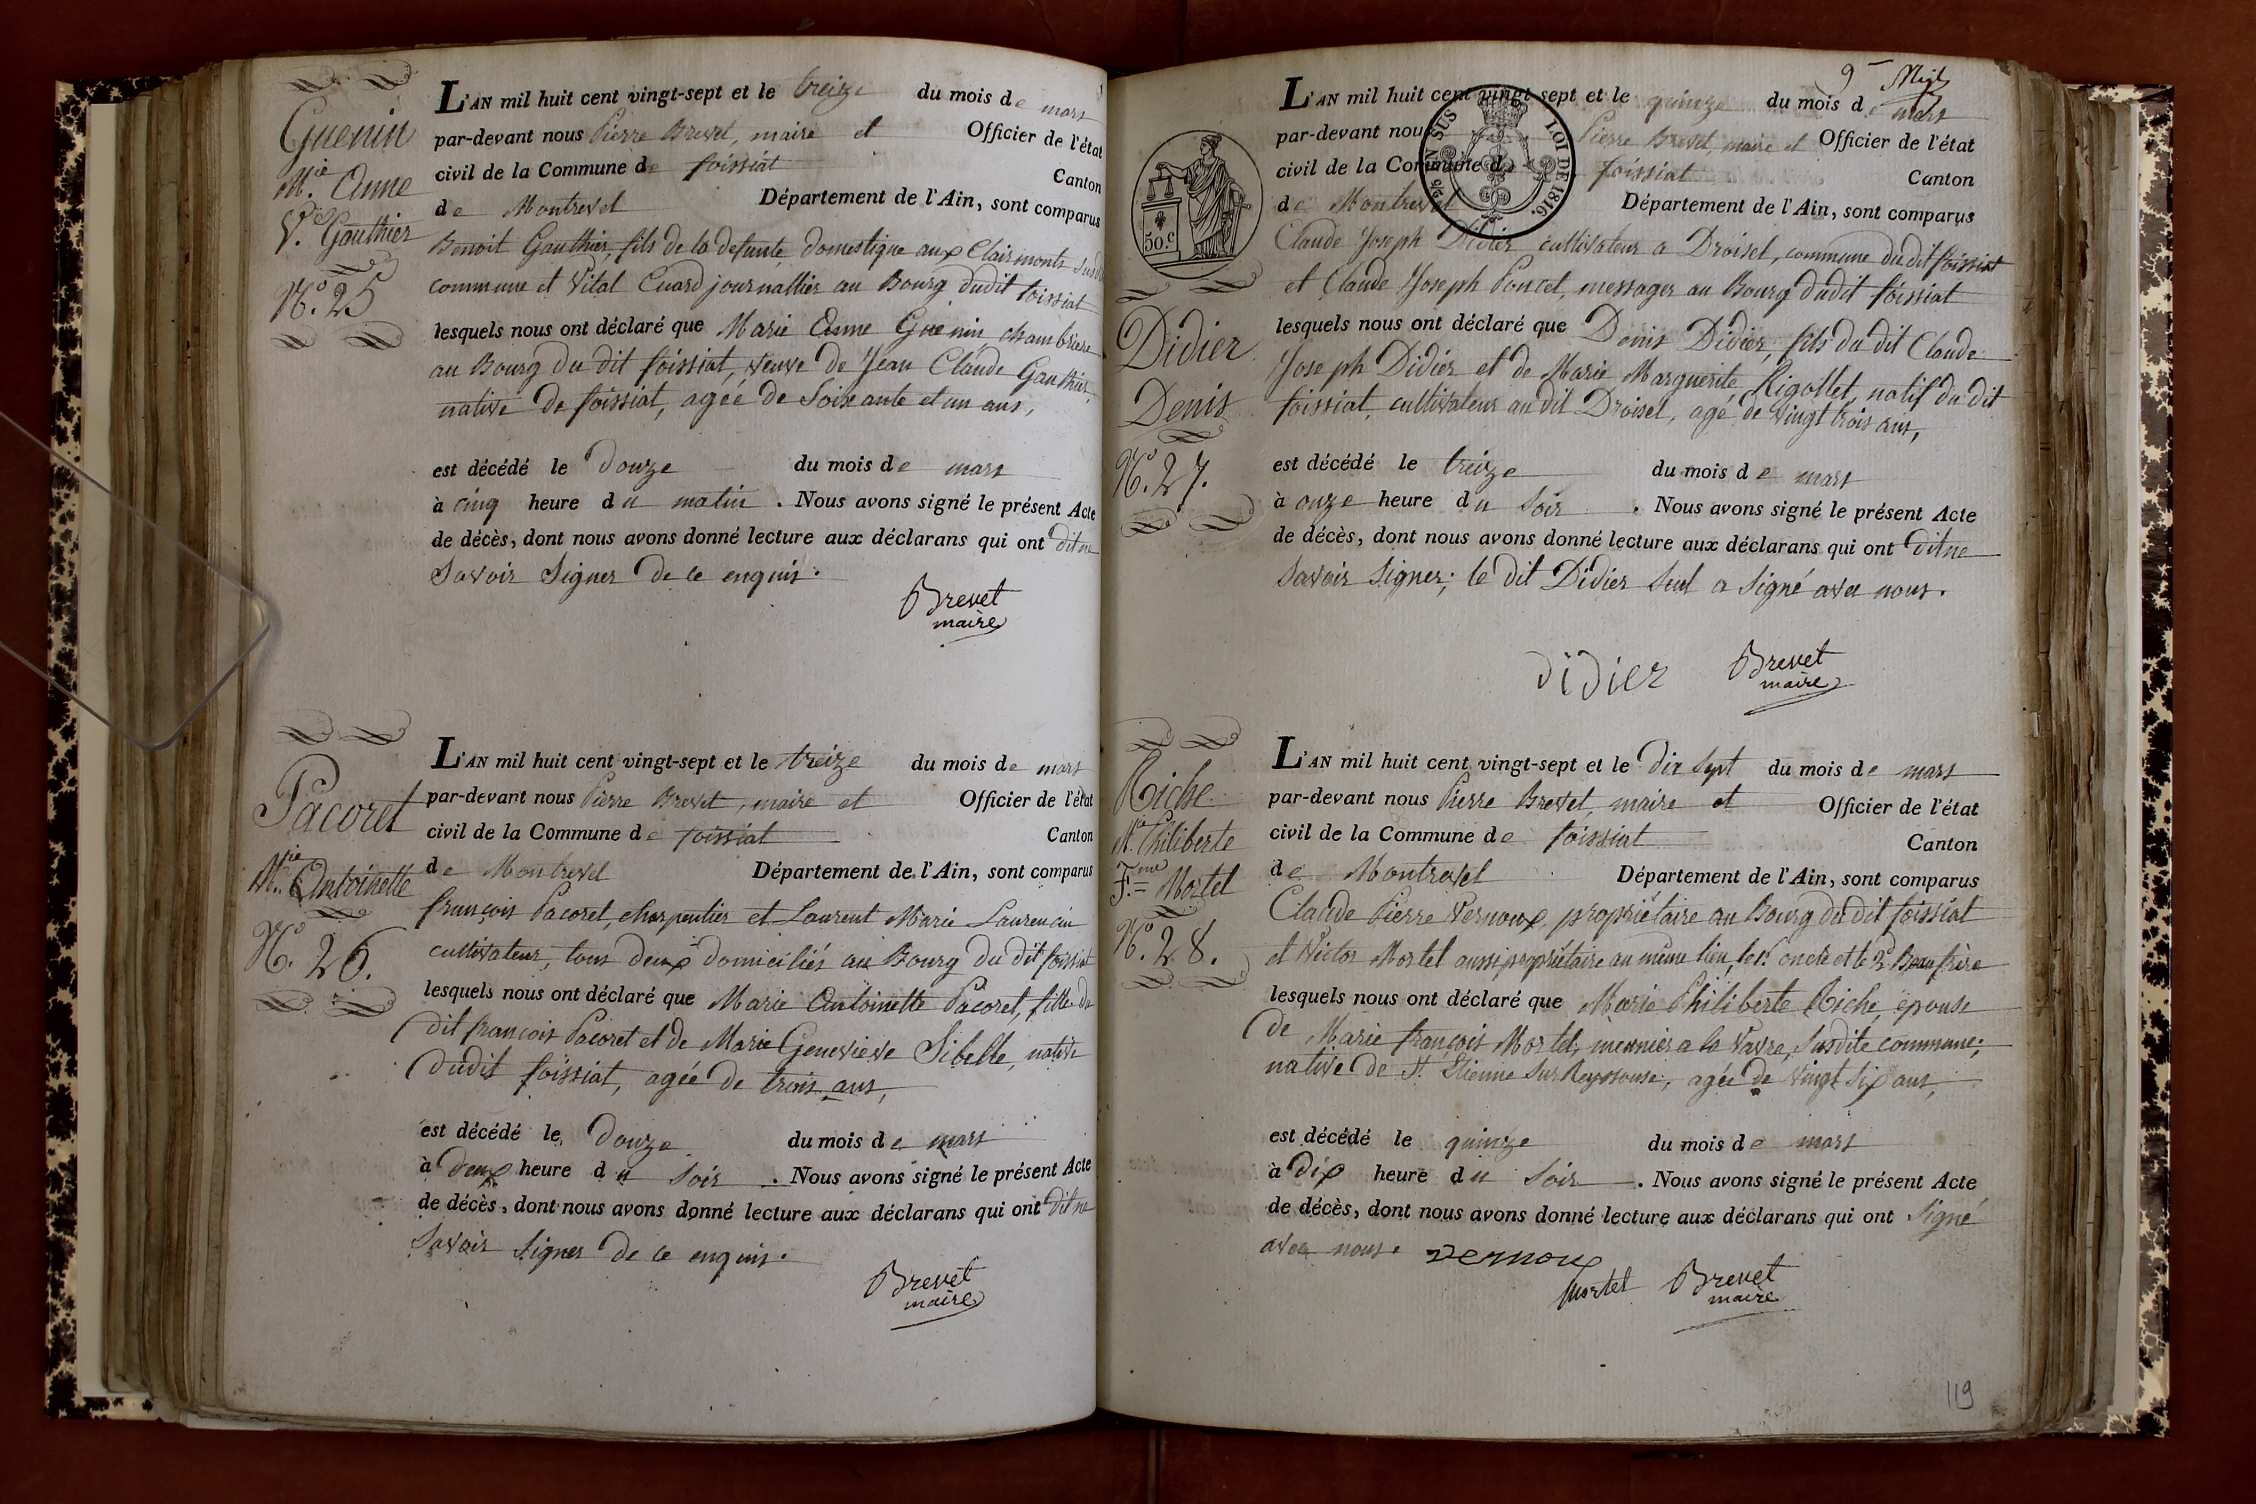 Guenin
M.ie Anne
V.e Gauthier
N.o 25
L'AN mil huit cent vingt-sept et le treize du mois de mars
par-devant nous Pierre Brevet, maire et Officier de l'état
civil de la Commune de foissiat Canton
de Montrevel Département de l'Ain, sont comparus
Benoit Gauthier, fils de la defunte, domestique aux Clairmonts susdite
commune et Vital Cuard journallier au Bourg dudit foissiat
lesquels nous ont déclaré que Marie Anne Guenin chambriere
au Bourg du dit foissiat, veuve de Jean Claude Gauthier,
native de foissiat, agée de Soixante et un ans,
est décédé le Douze du mois de mars
à cinq heure du matin . Nous avons signé le présent Acte
de décès, dont nous avons donné lecture aux déclarans qui ont dit ne
Savoir Signer de ce enquis.
Brevet
maire
Pacoret
M.ie Antoinette
N.o 26.
L'AN mil huit cent vingt-sept et le treize du mois de mars
par-devant nous Pierre Brevet, maire et Officier de l'état
civil de la Commune de foissiat Canton
de Montrevel Département de l'Ain, sont comparus
françois Pacoret, charpentier et Laurent Marie Laurencin
cultivateur, tous deux domiciliés au Bourg du dit foissiat
lesquels nous ont déclaré que Marie Antoinette Pacoret, fille du
dit françois Pacoret et de Marie Genevieve Sibelle, native
dudit foissiat, agée de trois ans,
est décédé le Douze du mois de mars
à Deux heure du Soir . Nous avons signé le présent Acte
de décès, dont nous avons donné lecture aux déclarans qui ont dit ne
Savoir Signer de ce enquis.
Brevet
maire
9
L'AN mil huit cent vingt-sept et le quinze du mois de mars
par-devant nous Pierre Brevet, maire et Officier de l'état
civil de la Commune de foissiat Canton
de Montrevel Département de l'Ain, sont comparus
EN SUS LOI DE 1816.
50.c
Claude Joseph Didier cultivateur a Droisel, commune du dit foissiat
et Claude Joseph Poncet, messager au Bourg dudit foissiat
Didier
Denis
N.o 27.
lesquels nous ont déclaré que Denis Didier, fils du dit Claude
Joseph Didier et de Marie Marguerite Rigollet, natif du dit
foissiat, cultivateur au dit Droisel, agé de vingt trois ans,
est décédé le treize du mois de mars
à onze heure du Soir . Nous avons signé le présent Acte
de décès, dont nous avons donné lecture aux déclarans qui ont dit ne
Savoir Signer; le dit Didier Seul a Signé avec nous.
Didier
Brevet
maire
Riche
M.ie Philiberte
F.me Mortel
N.o 28.
L'AN mil huit cent vingt-sept et le dix Sept du mois de mars
par-devant nous Pierre Brevet, maire et Officier de l'état
civil de la Commune de foissiat Canton
de Montrevel Département de l'Ain, sont comparus
Claude Pierre Vernoux, propriétaire au Bourg du dit foissiat
et Victor Mortel aussi propriétaire au même lieu, le 1.r oncle et le 2.e Beaufrère
lesquels nous ont déclaré que Marie Philiberte Riche, épouse
de Marie françois Mortel, meunier a la Vavre, Susdite commune;
native de St Etienne Sur Reyssouse, agée de vingt Six ans,
est décédé le quinze du mois de mars
à Dix heure du Soir . Nous avons signé le présent Acte
de décès, dont nous avons donné lecture aux déclarans qui ont Signé
avec nous. Vernoux
Mortel
Brevet
maire
119